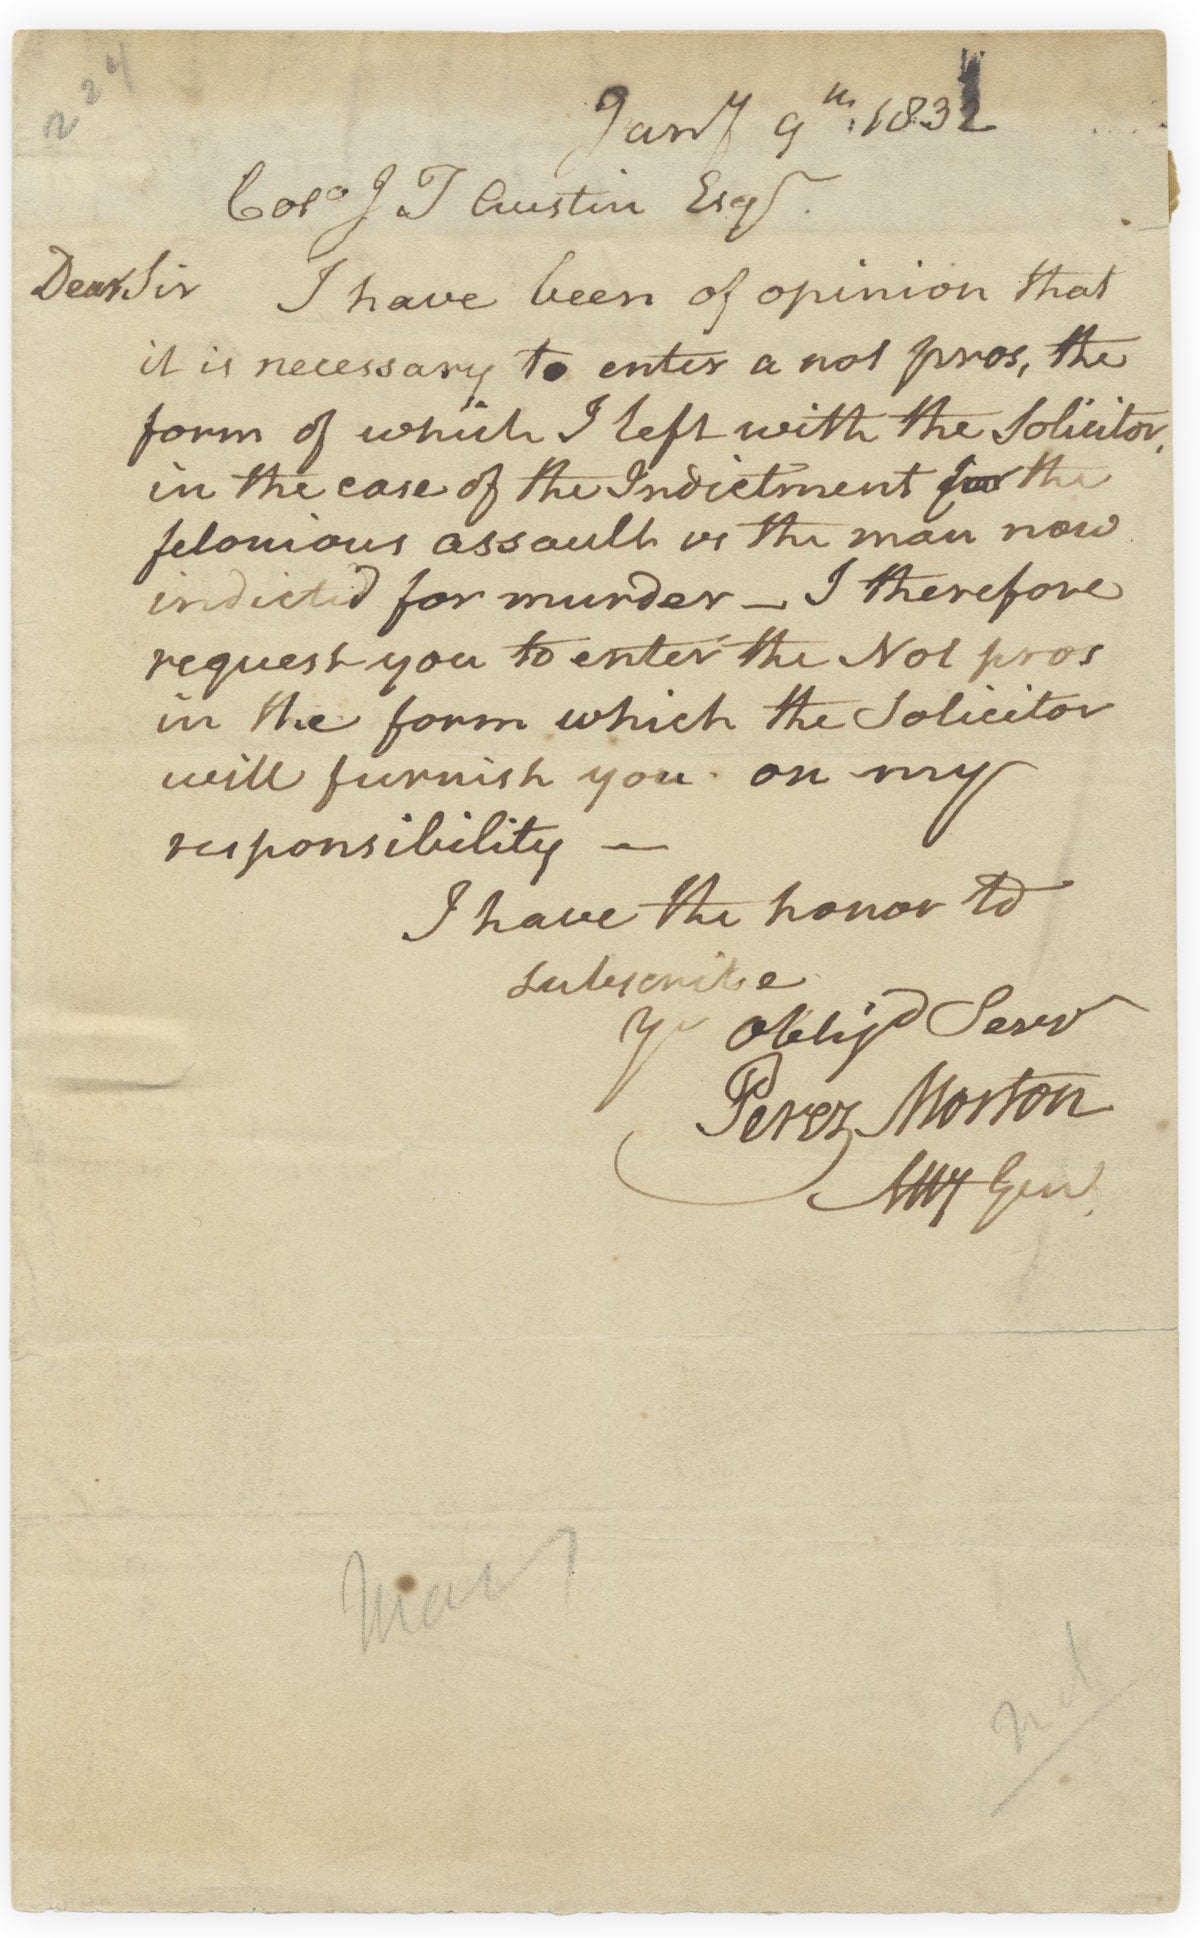 224
Jany 9th, 1832
Colo J T Austin Esqr.
Dear Sir I have been of opinion that
it is necessary to enter a nol pros, the
form of which I left with the Solicitor,
in the case of the Indictment for the
felonious assault vs the man now
indicted for murder — I therefore
request you to enter the Nol pros
in the form which the Solicitor
will furnish you on my
responsibility —
I have the honor to
subscribe
Yr obligd Servt
Perez Morton
Atty Genl.